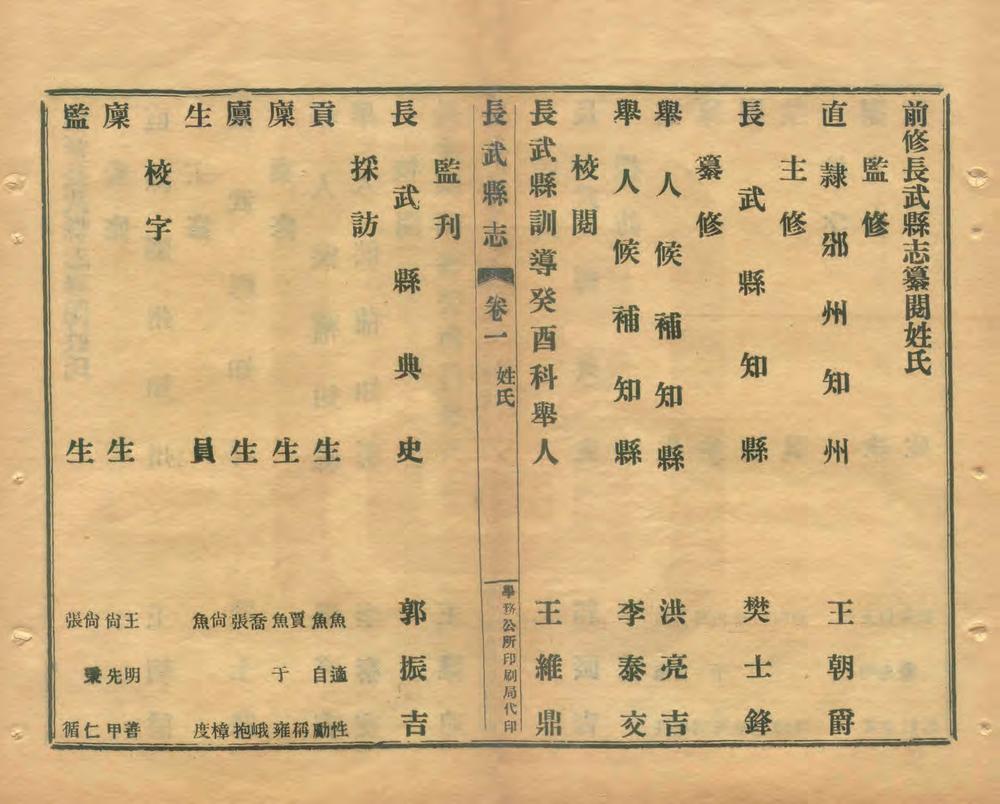 前修長武縣志纂閱姓氏
監修
直隸邠州知州 王朝爵
主修
長武縣知縣 樊士鋒
纂修
舉人候補知縣 洪亮吉
舉人候補知縣 李泰交
校閱
長武縣訓導癸酉科舉人 王維鼎
長武縣志 卷一 姓氏 學務公所印刷局代印
監刊
長武縣典史 郭振吉
採訪
貢生 魚適性 魚自勵
廩生 賈稱 魚于雍
廩生 喬峨 張抱
生員 尙樟 魚度
校字
廩生 王明善 尙先甲
監生 尙秉仁 張循